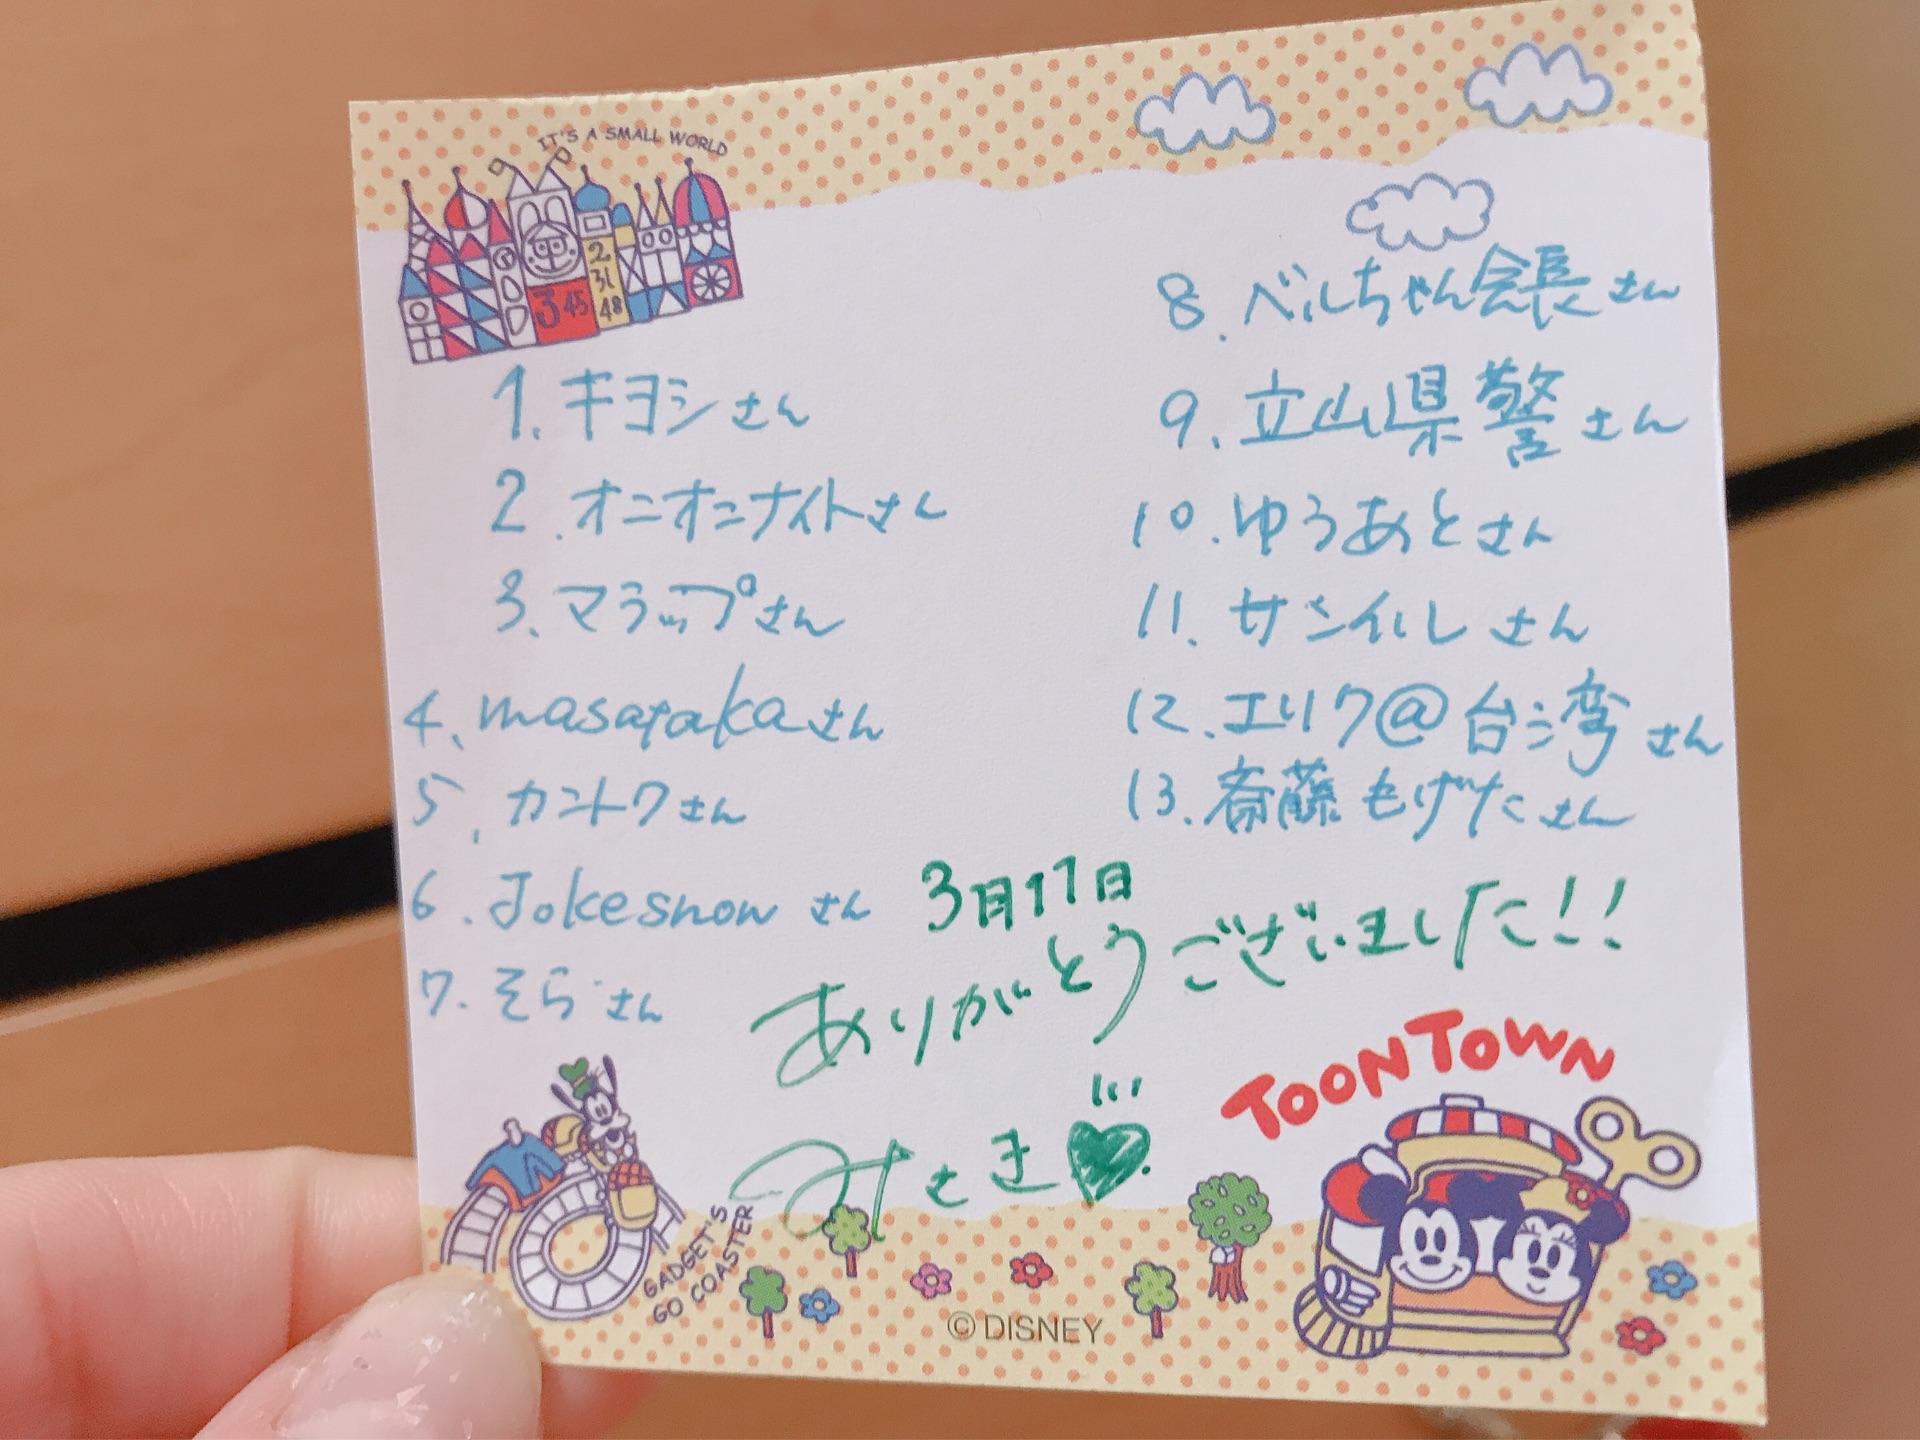 IT'S A SMALL WORLD
2
31
3 45 48
1. キヨシさん
2. オニオニナイトさん
3. マラップさん
4. masataka さん
5. カントクさん
6. Jokesnow さん
7. そらさん
8. ベルちゃん会長さん
9. 立山県警さん
10. ゆうあとさん
11. サンイルレさん
12. エリク@台湾さん
13. 斎藤もげたさん
3月17日
ありがとうございました!!
みさき
TOONTOWN
GADGET'S
GO COASTER
©DISNEY